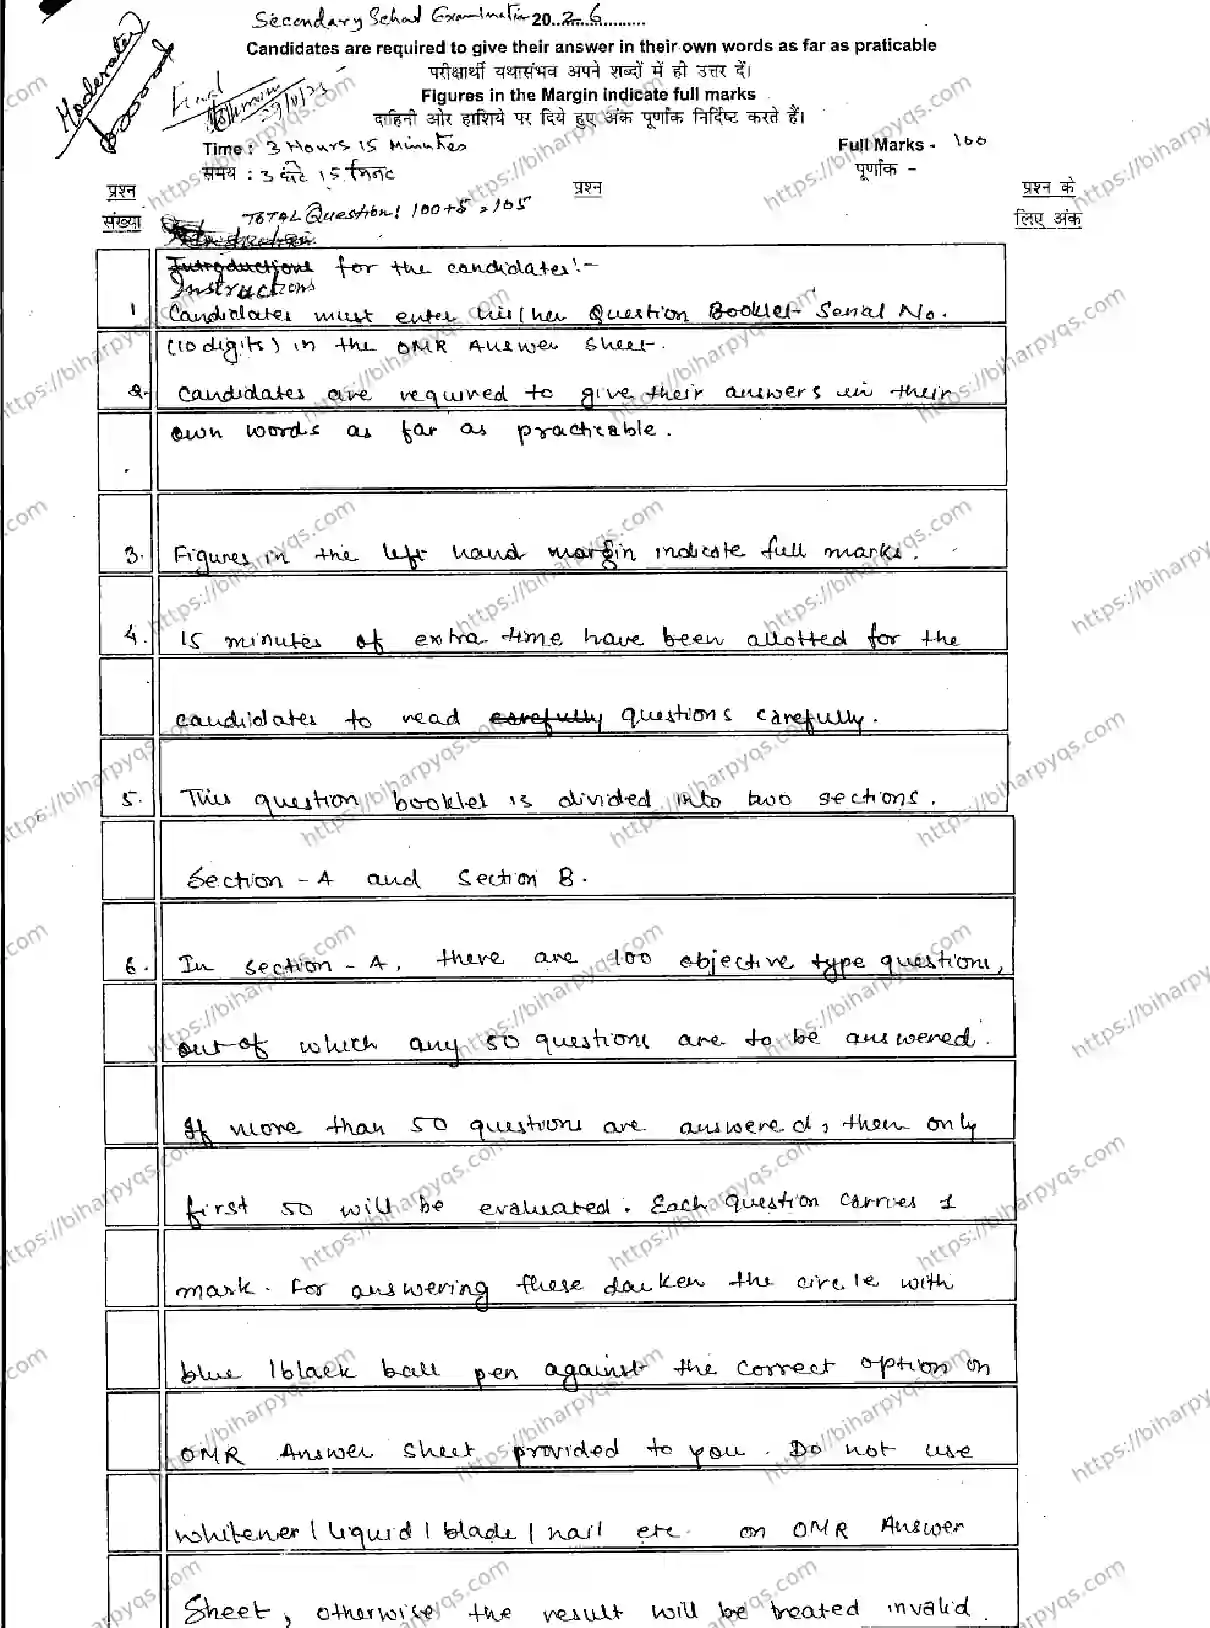 Secondary School Examination 20..2.6............
Candidates are required to give their answer in their own words as far as praticable
परीक्षार्थी यथासंभव अपने शब्दों में ही उत्तर दें।
Figures in the Margin indicate full marks
दाहिनी ओर हाशिये पर दिये हुए अंक पूर्णांक निर्दिष्ट करते हैं।
Moderator
Final
Time : 3 Hours 15 Minutes
Full Marks - 100
समय : 3 घंटे 15 मिनट
पूर्णांक -
प्रश्न संख्या
प्रश्न
प्रश्न के लिए अंक
TOTAL Question: 100+5=105
Introductions for the candidates:-
Instructions
1 Candidates must enter his/her Question Booklet Serial No.
(10 digits) in the OMR Answer Sheet.
2. Candidates are required to give their answers in their
own words as far as practicable.
3. Figures in the left hand margin indicate full marks.
4. 15 minutes of extra time have been allotted for the
candidates to read carefully questions carefully.
5. This question booklet is divided into two sections.
Section - A and Section B.
6. In section - A, there are 100 objective type questions,
out of which any 50 questions are to be answered.
If more than 50 questions are answered, then only
first 50 will be evaluated. Each question carries 1
mark. For answering these darken the circle with
blue / black ball pen against the correct option on
OMR Answer Sheet provided to you. Do not use
whitener / liquid / blade / nail etc. on OMR Answer
Sheet, otherwise the result will be treated invalid.
https://biharpyqs.com